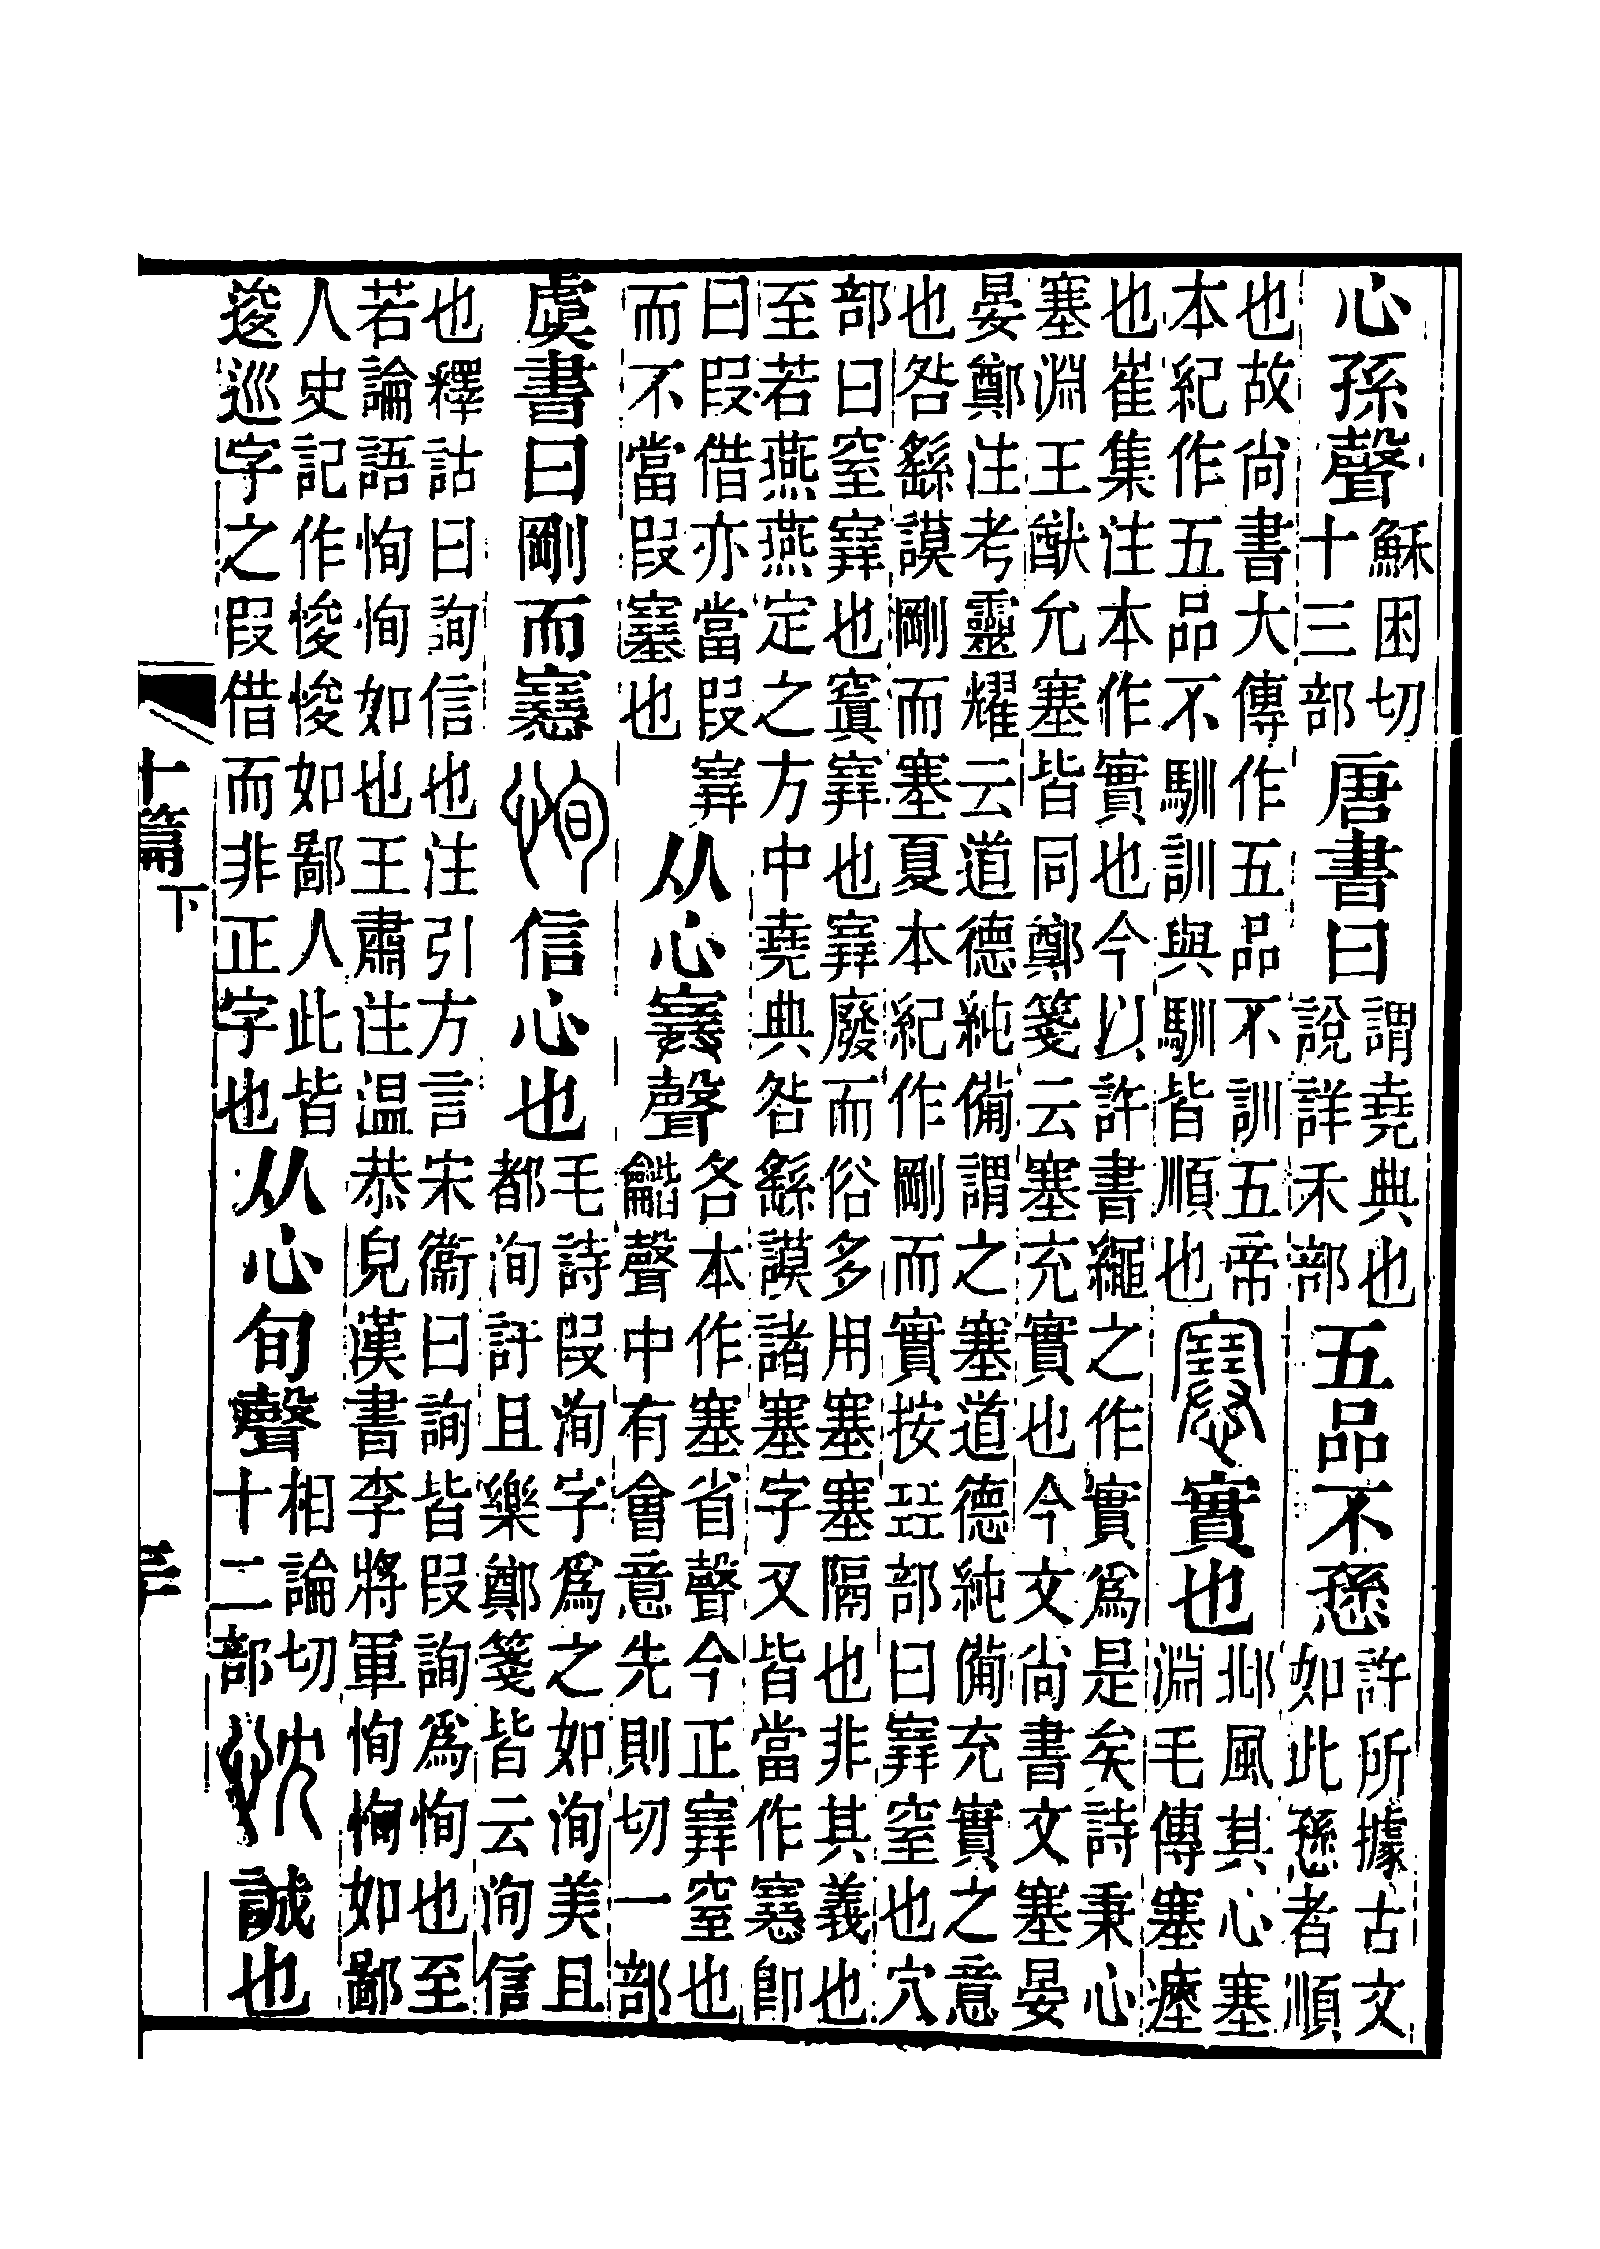 心孫聲穌困切十三部唐書曰謂堯典也說詳禾部五品不愻許所據古文如此愻者順
也故尚書大傳作五品不訓五帝本紀作五品不馴訓與馴皆順也𡫳實也邶風其心塞淵毛傳塞瘞
也崔集注本作實也今以許書繩之作實爲是矣詩秉心塞淵王猷允塞皆同鄭箋云塞充實也今文尚書文塞晏
晏鄭注考靈耀云道德純備謂之塞道德純備充實之意也咎繇謨剛而塞夏本紀作剛而實按㠭部曰𡨄窒也穴
部曰窒𡨄也窴𡨄也𡨄廢而俗多用塞塞隔也非其義也至若燕燕定之方中堯典咎繇謨諸塞字又皆當作𡫳卽
曰叚借亦當叚𡨄而不當叚塞也从心𡨄聲各本作塞省聲今正𡨄窒也龤聲中有會意先則切一部
虞書曰剛而𡫳恂信心也毛詩叚洵字爲之如洵美且都洵訏且樂鄭箋皆云洵信
也釋詁曰詢信也注引方言宋衞曰詢皆叚詢爲恂也至若論語恂恂如也王肅注温恭皃漢書李將軍恂恂如鄙
人史記作悛悛如鄙人此皆逡巡字之叚借而非正字也从心旬聲相論切十二部忱誠也
十篇下